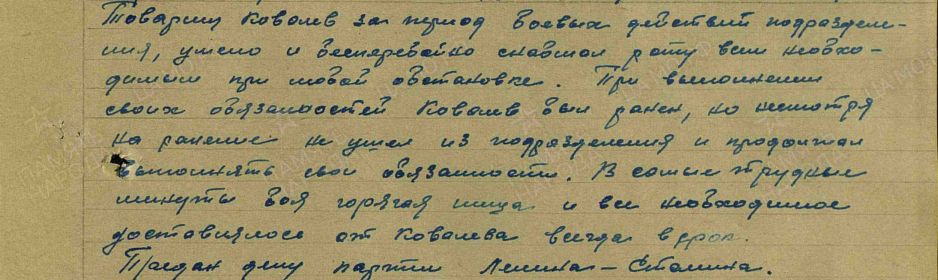 Товарищ Ковалев за период боевых действий подразделе-
ния, умело и бесперебойно снабжал роту всем необхо-
димым при любой обстановке. При выполнении
своих обязанностей Ковалев был ранен, но несмотря
на ранение не ушел из подразделения и продолжал
выполнять свои обязанности. В самые трудные
минуты боя горячая пища и все необходимое
доставлялось от Ковалева всегда в срок.
Предан делу партии Ленина-Сталина.